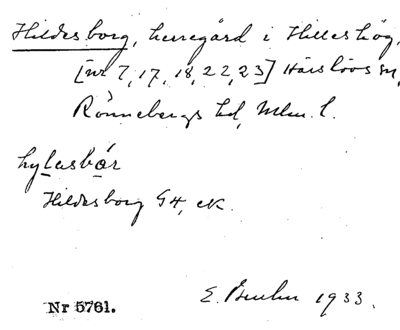 Hildesborg, herregård i Hilleshög,
[nr 7, 17, 18, 22, 23] Härslövs sn,
Rönnebergs hd, Mlm. l.
hylasbår
Hildesborg G4, ek.
E. 1933.
Nr 5761.